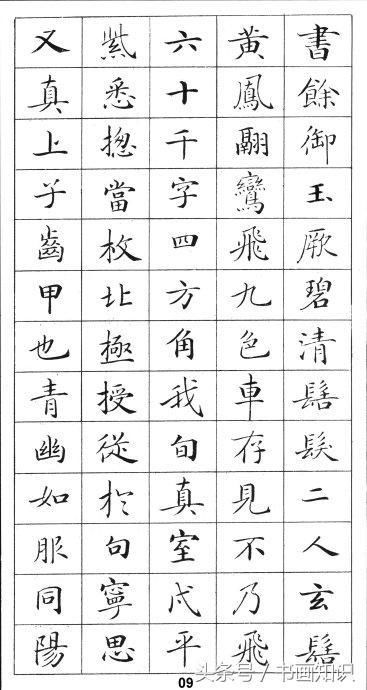 書餘御玉厥碧清髻髮二人玄髻
黃鳳翩鸞飛九色車存見不乃飛
六十千字四方角我旬真室戍平
紫悉揔當枚北極授從於句寧思
又真上子齒甲也青幽如服同陽
09
头条号/书画知识